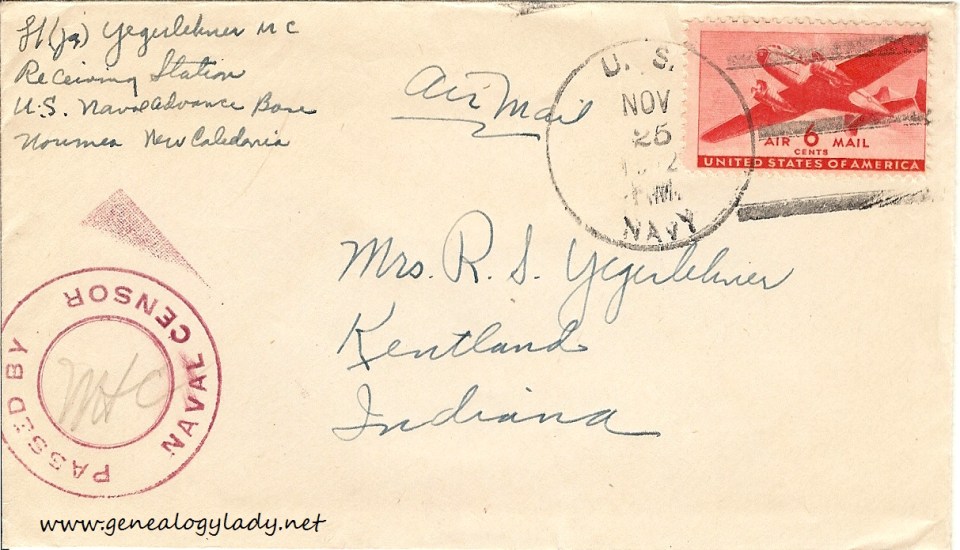 Lt(jg) Yegerlehner MC
Receiving Station
U.S. Naval Advance Base
Noumea New Caledonia
Air Mail
U. S.
NOV
25
NAVY
AIR 6 MAIL
CENTS
UNITED STATES OF AMERICA
Mrs. R. S. Yegerlehner
Kentland
Indiana
PASSED BY
NAVAL CENSOR
MHC
www.genealogylady.net